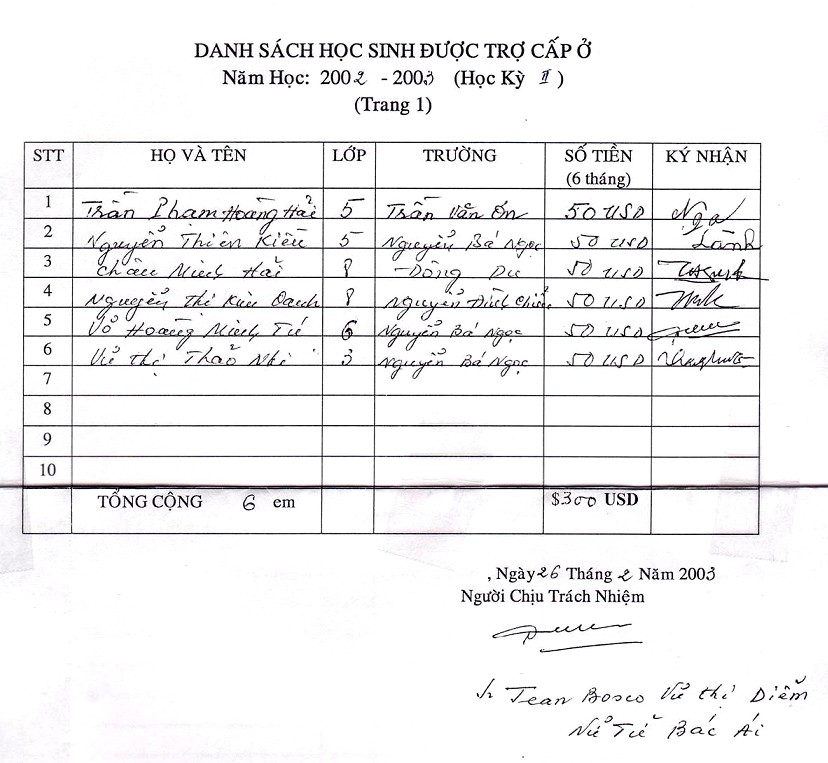 DANH SÁCH HỌC SINH ĐƯỢC TRỢ CẤP Ở
Năm Học: 2002 - 2003 (Học Kỳ II)
(Trang 1)
STT HỌ VÀ TÊN LỚP TRƯỜNG SỐ TIỀN (6 tháng) KÝ NHẬN
1 Trần Phạm Hoàng Hải 5 Trần Văn Ơn 50 USD Nga
2 Nguyễn Thiên Kiều 5 Nguyễn Bá Ngọc 50 USD Lành
3 Châu Minh Hải 8 Đông Du 50 USD
4 Nguyễn thị Kiều Oanh 8 Nguyễn Đình Chiểu 50 USD
5 Võ Hoàng Minh Tú 6 Nguyễn Bá Ngọc 50 USD
6 Vũ thị Thảo Nhi 3 Nguyễn Bá Ngọc 50 USD
7
8
9
10
TỔNG CỘNG 6 em $300 USD
, Ngày 26 Tháng 2 Năm 2003
Người Chịu Trách Nhiệm
Sr Jean Bosco Vũ thị Diễm
Nữ Tử Bác Ái